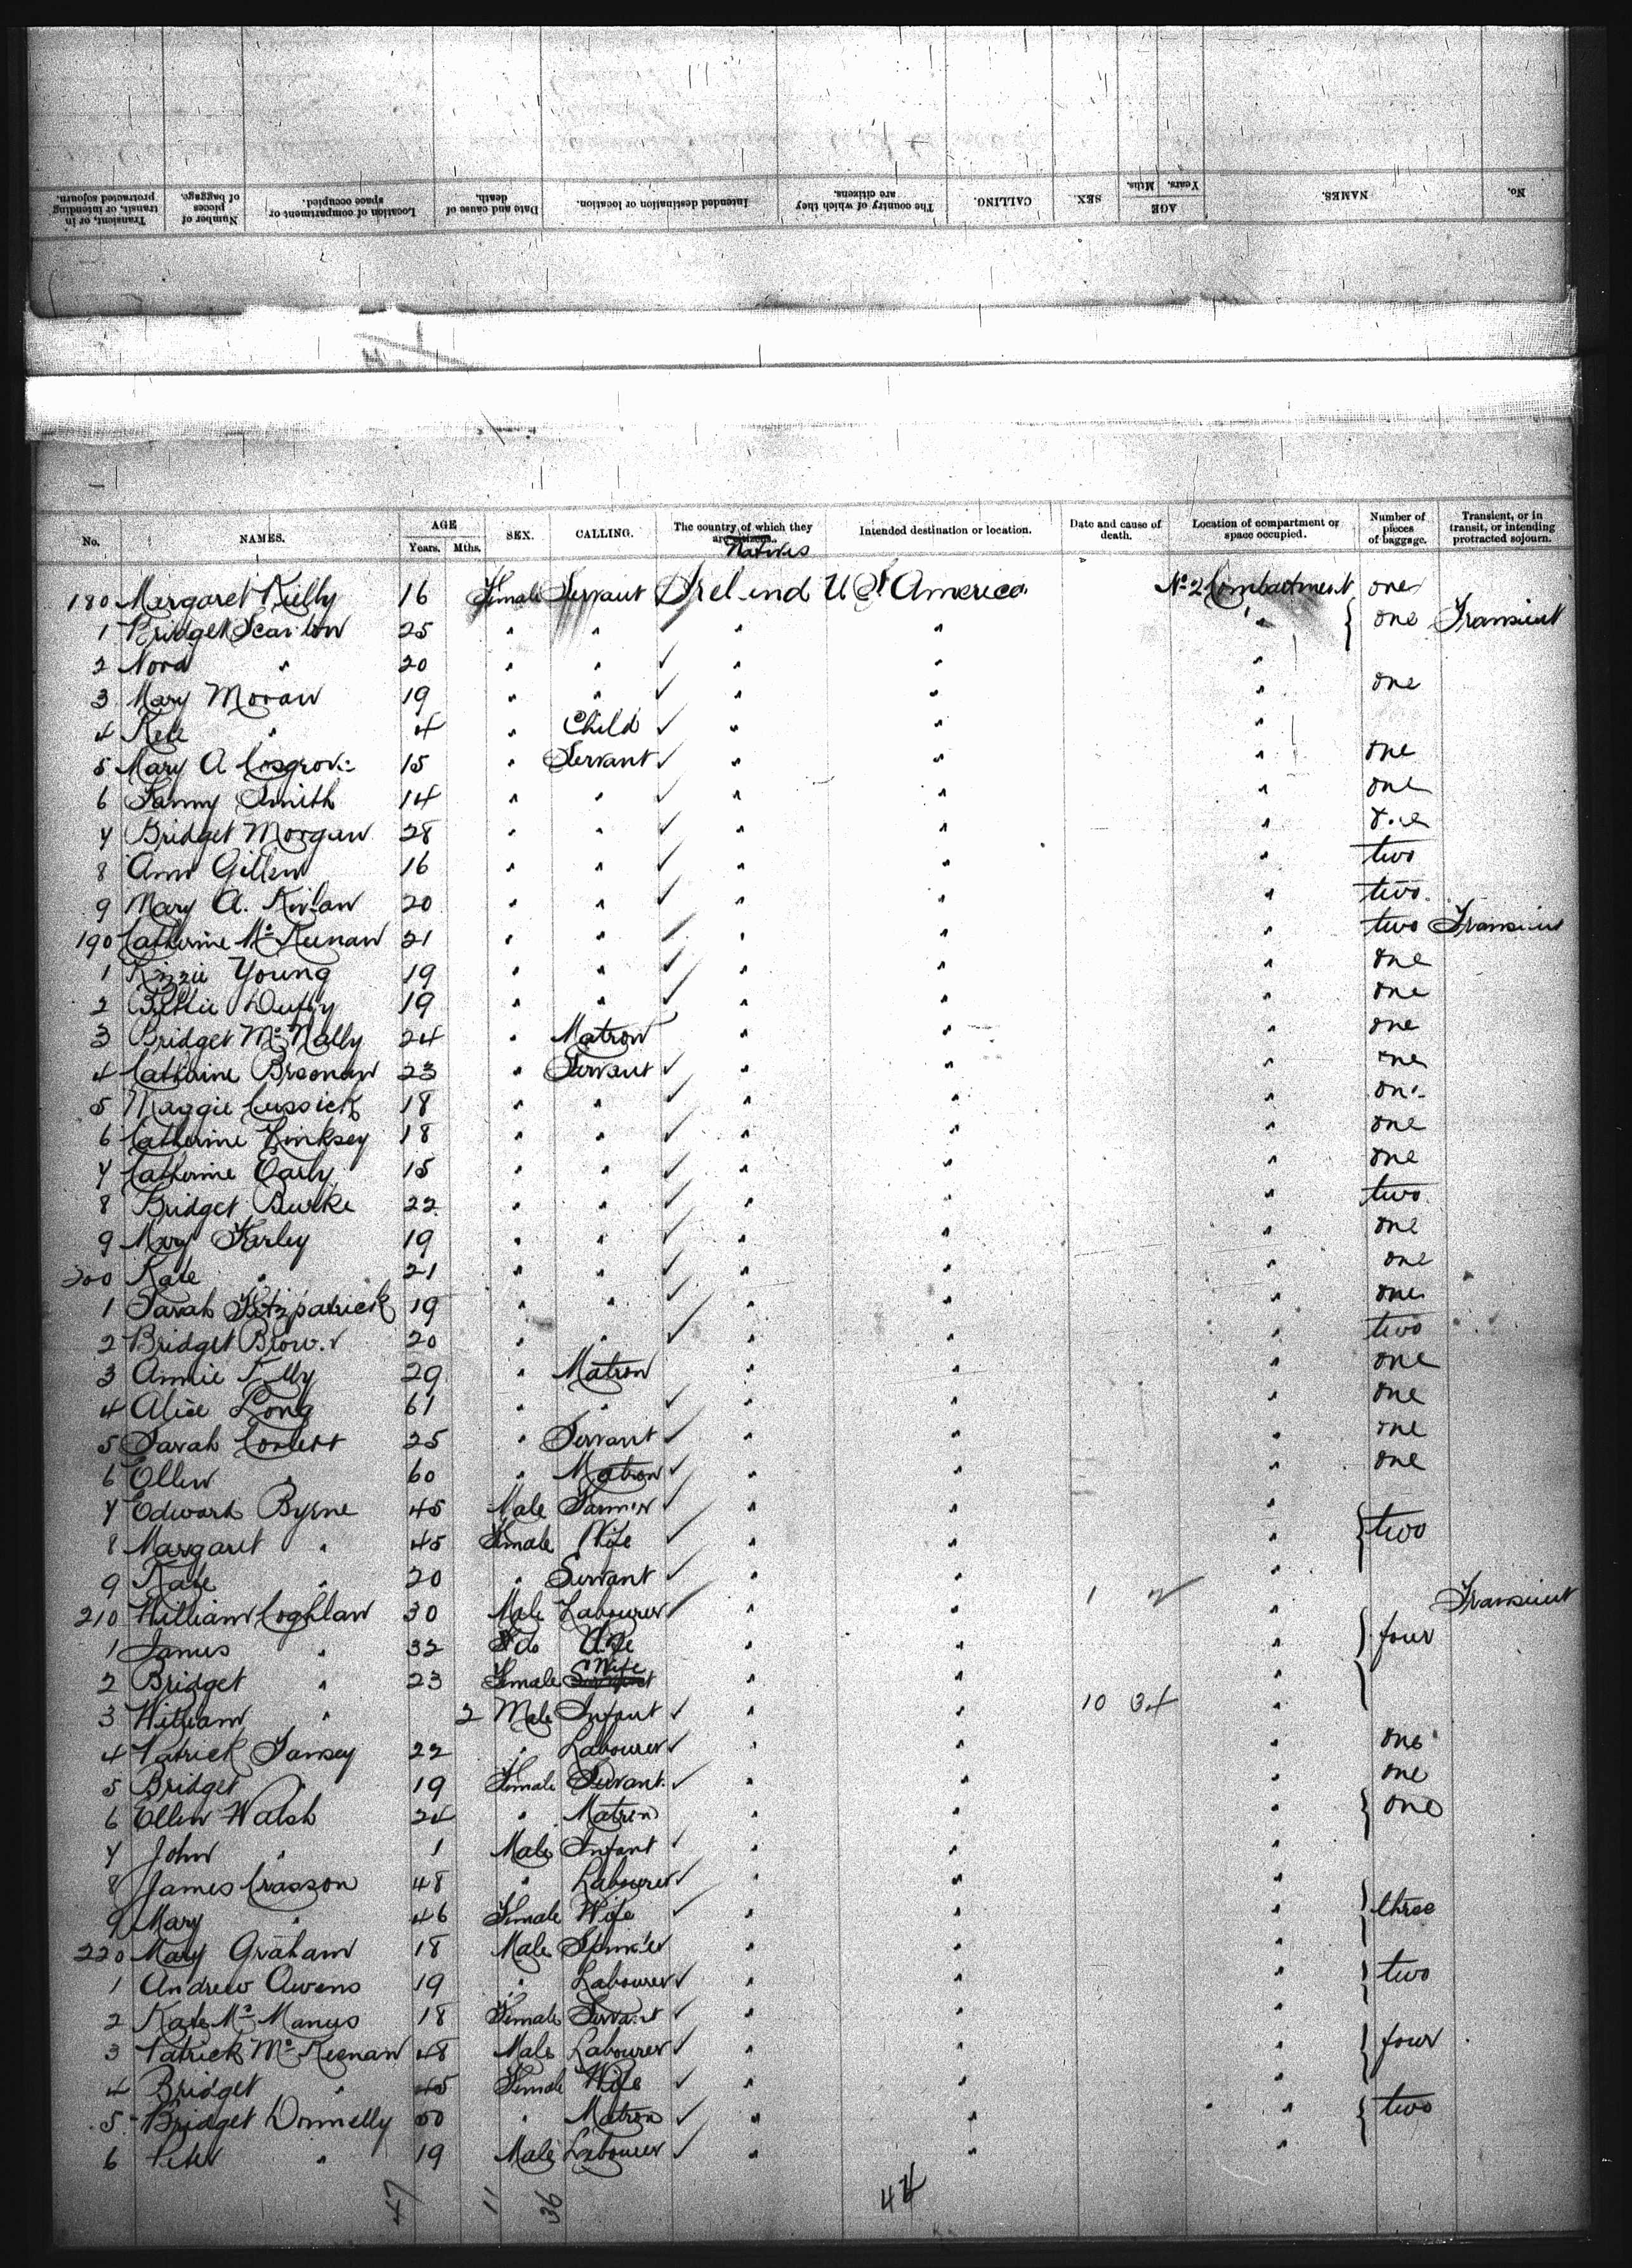 No. NAMES. AGE Years. Mths. SEX. CALLING. The country of which they are citizens. Intended destination or location. Date and cause of death. Location of compartment or space occupied. Number of pieces of baggage. Transient, or in transit, or intending protracted sojourn.
No. NAMES. AGE Years. Mths. SEX. CALLING. The country of which they are citizens. Natives Intended destination or location. Date and cause of death. Location of compartment or space occupied. Number of pieces of baggage. Transient, or in transit, or intending protracted sojourn.
180 Margaret Kielly 16 Female Servant Ireland U S America No 2 Compartment one
1 Bridget Scanlon 25 " " " " " { one Transient
2 Nora " 20 " " ✓ " " "
3 Mary Moran 19 " " ✓ " " " one
4 Kate " 4 " Child ✓ " " "
5 Mary A Cosgrove 15 " Servant ✓ " " " one
6 Fanny Smith 14 " " ✓ " " " one
7 Bridget Morgan 28 " " ✓ " " " one
8 Ann Gillen 16 " " ✓ " " " two
9 Mary A. 20 " " ✓ " " " two
190 Catherine Mc Keenan 21 " " ✓ " " " two Transient
1 Lizzie Young 19 " " ✓ " " " one
2 Duffy 19 " " ✓ " " " one
3 Bridget Mc Nally 24 " Matron " " " one
4 Catherine Brennan 23 " Servant ✓ " " " one
5 Maggie Cussick 18 " " ✓ " " " one
6 Catherine Kinksey 18 " " ✓ " " " one
7 Catherine Early 15 " " ✓ " " " one
8 Bridget Burke 22 " " ✓ " " " two
9 Mary Farley 19 " " ✓ " " " one
200 Kate " 21 " " ✓ " " " one
1 Sarah Fitzpatrick 19 " " ✓ " " " one
2 Bridget Brown 20 " " ✓ " " " two
3 Annie Kelly 29 " Matron " " " one
4 Alice Long 61 " " ✓ " " " one
5 Sarah Corlett 25 " Servant ✓ " " " one
6 Ellen " 60 " Matron ✓ " " " one
7 Edward Byrne 45 Male Farmer ✓ " " " { two
8 Margaret " 45 Female Wife ✓ " " "
9 Kate " 20 " Servant ✓ " " "
210 William Coghlan 30 Male Labourer ✓ " " 1 " Transient
1 James " 32 do " " " { four
2 Bridget " 23 Female Wife " " "
3 William " 2 Male Infant ✓ " " 10 "
4 Patrick Tansey 22 " Labourer ✓ " " " one
5 Bridget " 19 Female Servant ✓ " " " one
6 Ellen Walsh 24 " Matron " " " { one
7 John " 1 Male Infant ✓ " " "
8 James Crasson 48 " Labourer ✓ " " "
9 Mary " 46 Female Wife ✓ " " " { three
220 Mary Graham 18 Male Spinster " " "
1 Andrew Owens 19 " Labourer ✓ " " " { two
2 Kate Mc Manus 18 Female Servant ✓ " " "
3 Patrick Mc Keenan 48 Male Labourer ✓ " " " { four
4 Bridget " 45 Female Wife ✓ " " "
5 Bridget Donnelly 50 " Matron ✓ " " " { two
6 Peter " 19 Male Labourer ✓ " " "
47 11 36